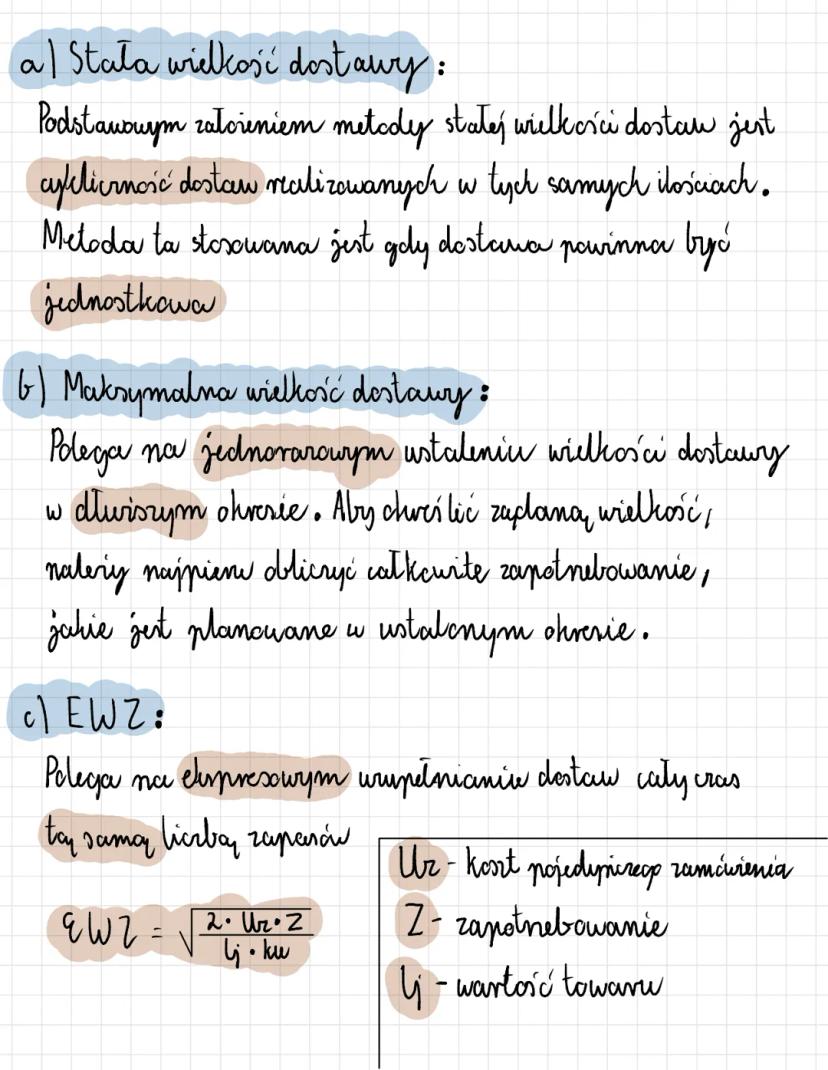 a) Stała wielkość dostawy:
Podstawowym założeniem metody stałej wielkości dostaw jest
cykliczność dostaw realizowanych w tych samych ilościach.
Metoda ta stosowana jest gdy dostawa powinna być
jednostkowa
b) Maksymalna wielkość dostawy:
Polega na jednorazowym ustaleniu wielkości dostawy
w dłuższym okresie. Aby określić żądaną wielkość,
należy najpierw obliczyć całkowite zapotrzebowanie,
jakie jest planowane w ustalonym okresie.
c) EWZ:
Polega na ekspresowym uzupełnianiu dostaw cały czas
tą samą liczbą zapasów
EWZ = √(2 · Uz · Z / Cj · ku)
Uz - koszt pojedynczego zamówienia
Z - zapotrzebowanie
Cj - wartość towaru